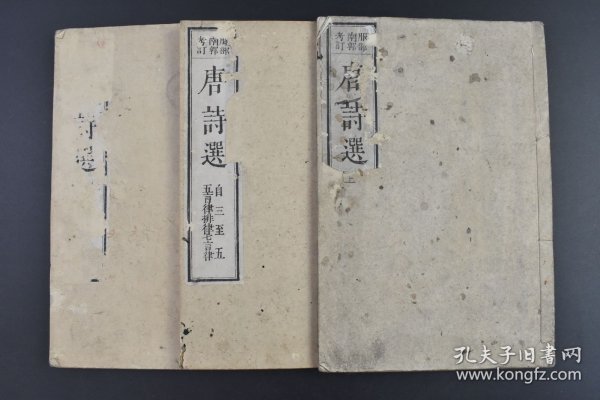 服部
南郭
考訂
唐詩選
上
服部
南郭
考訂
唐詩選
自三至五
五言律排律七言律
詩選
孔夫子旧书网
www.kongfz.com